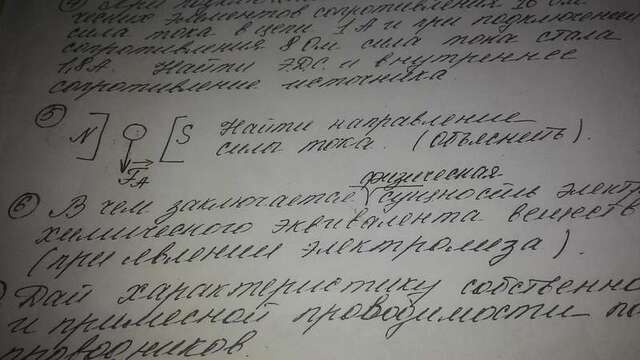 ческих элементов сопротивления 16 Ом
сила тока в цепи 1 А и при подключении
сопротивления 8 Ом сила тока стала
1,8 А. Найти ЭДС и внутреннее
сопротивление источника.
5 N S Найти направление
сила тока. (Объяснить).
F_A
физическая
6 В чем заключается сущность электро
химического эквивалента веществ
(при явлении электролиза).
Дай характеристику собственно
и примесной проводимости по
проводников.